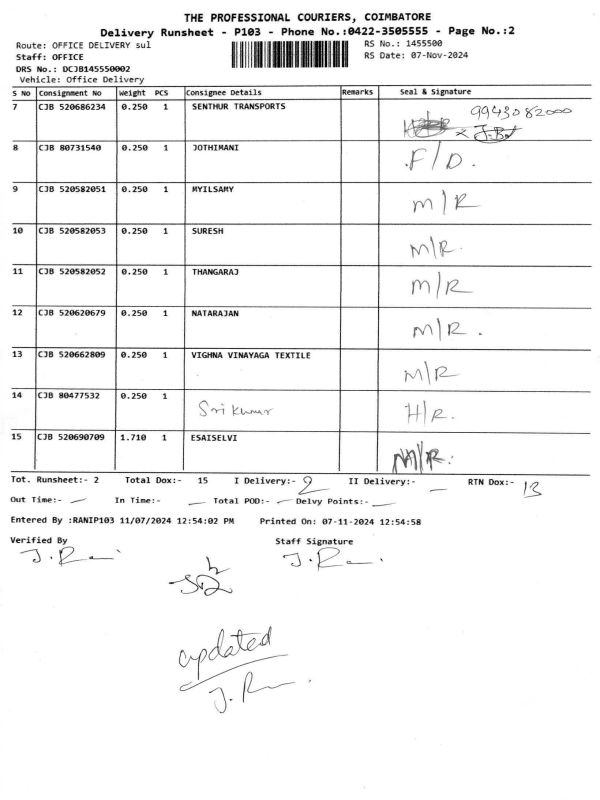 THE PROFESSIONAL COURIERS, COIMBATORE
Delivery Runsheet - P103 - Phone No.:0422-3505555 - Page No.:2
Route: OFFICE DELIVERY sul
RS No.: 1455500
Staff: OFFICE
RS Date: 07-Nov-2024
DRS No.: DCJB145550002
Vehicle: Office Delivery
S No Consignment No Weight PCS Consignee Details Remarks Seal & Signature
7 CJB 520686234 0.250 1 SENTHUR TRANSPORTS 9943082000
8 CJB 80731540 0.250 1 JOTHIMANI F/D.
9 CJB 520582051 0.250 1 MYILSAMY M/R
10 CJB 520582053 0.250 1 SURESH M/R.
11 CJB 520582052 0.250 1 THANGARAJ M/R
12 CJB 520620679 0.250 1 NATARAJAN M/R.
13 CJB 520662809 0.250 1 VIGHNA VINAYAGA TEXTILE M/R
14 CJB 80477532 0.250 1 Sri Kumar H/R.
15 CJB 520690709 1.710 1 ESAISELVI M/R.
Tot. Runsheet:- 2 Total Dox:- 15 I Delivery:- 2 II Delivery:- — RTN Dox:- 13
Out Time:- — In Time:- — Total POD:- — Delvy Points:- —
Entered By :RANIP103 11/07/2024 12:54:02 PM Printed On: 07-11-2024 12:54:58
Verified By Staff Signature
J. Rani J. Rani.
updated
J. Rani.